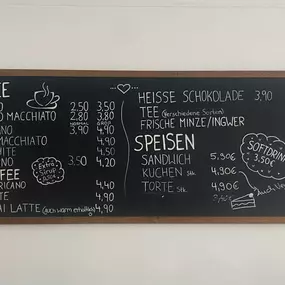 EE
O 2,50 3,50
O MACCHIATO 2,80 3,80
NORMAL GROSS
ANO 3,90 4,90
MACCHIATO 4,90
HITE 4,50
NO 3,50 4,20
Extra
Sirup
0,50€
FEE
RICANO 4,40
TE 4,90
AI LATTE (auch warm erhältlich) 4,90
HEISSE SCHOKOLADE 3,90
TEE (verschiedene Sorten)
FRISCHE MINZE/INGWER
SPEISEN
SANDWICH 5,90€
KUCHEN Stk. 4,90€
TORTE Stk. 4,90€
SOFTDRIN
3,50€
Auch Ve